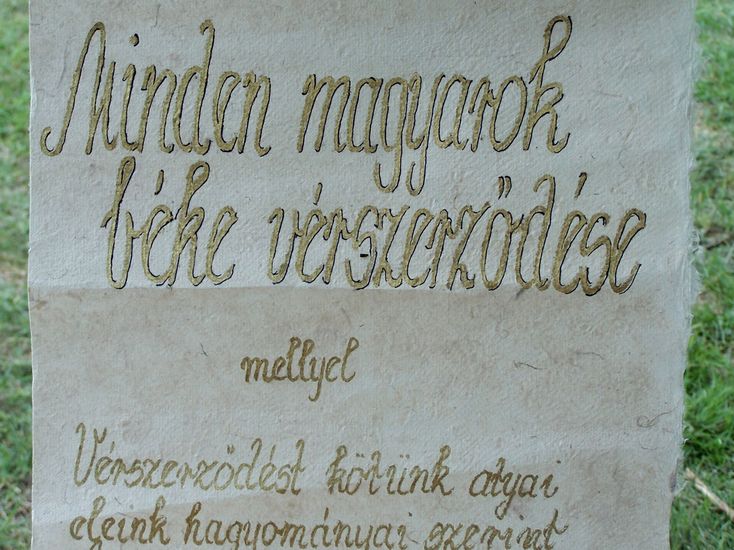 Minden magyarok
béke vérszerződése
mellyel
Vérszerződést kötünk atyai
eleink hagyományai szerint